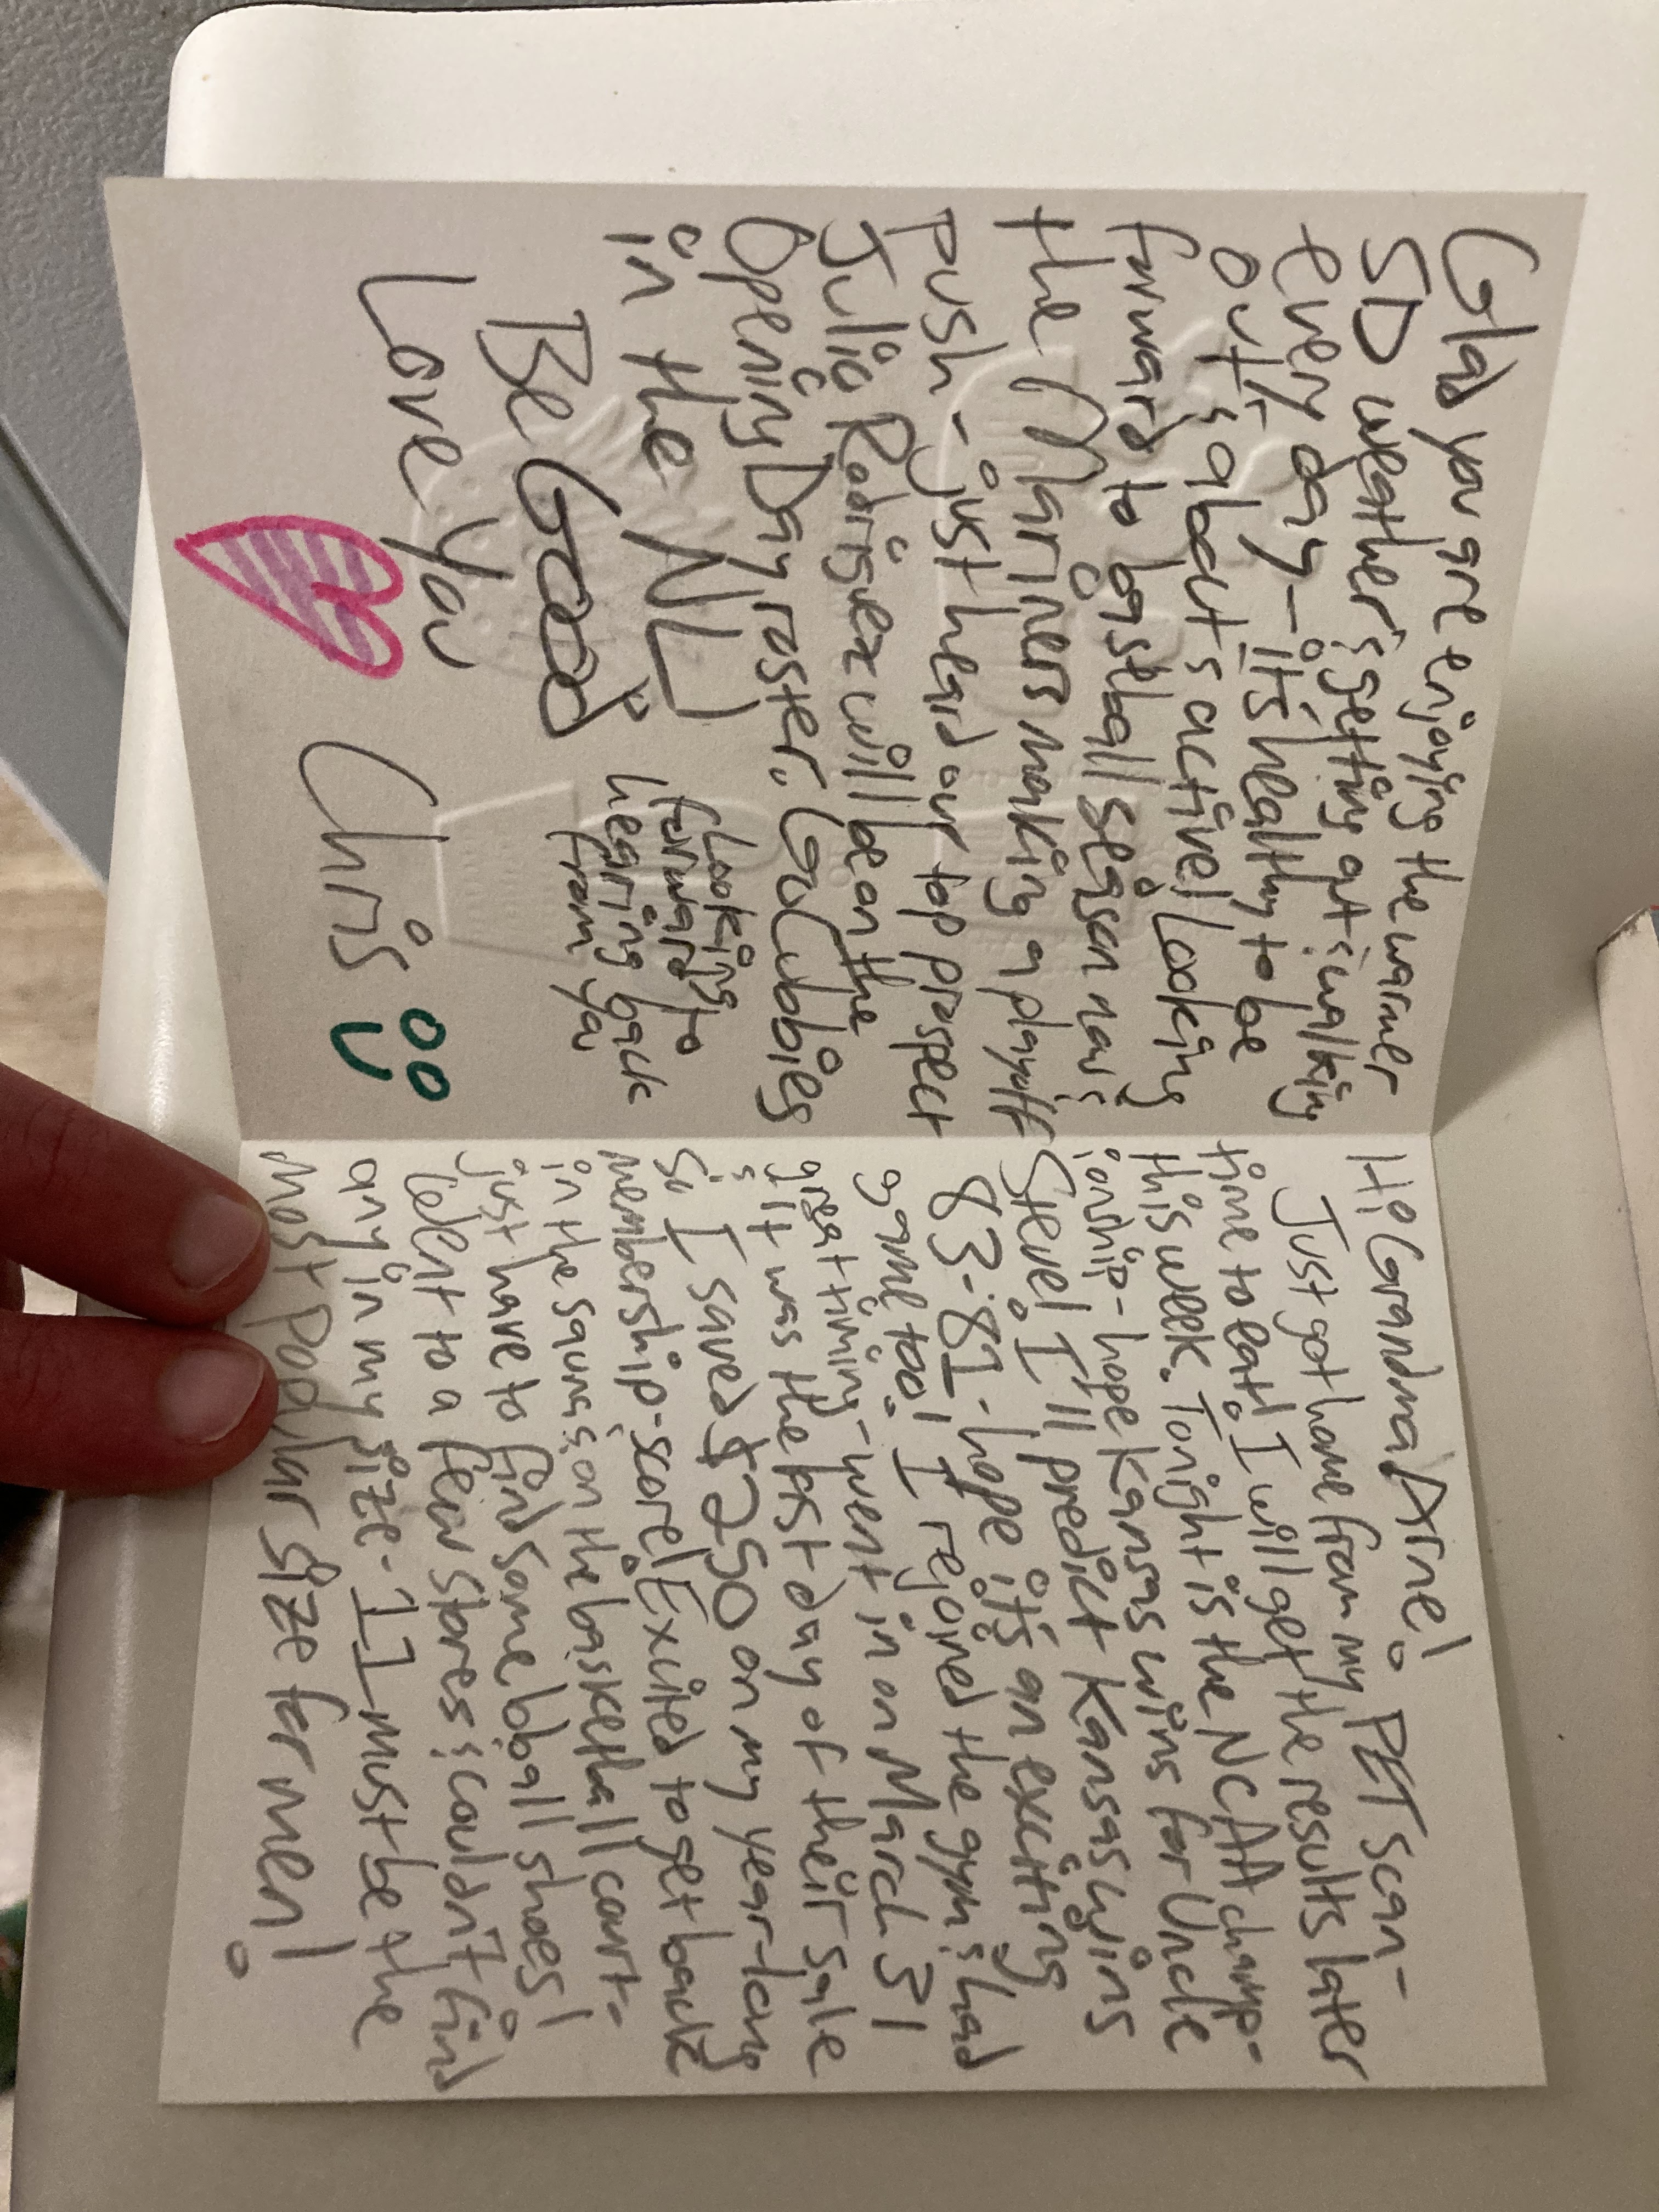 Hi Grandma Arne!
Just got home from my PET scan-
time to eat! I will get the results later
this week. Tonight is the NCAA champ-
ionship - hope Kansas wins for Uncle
Steve! I'll predict Kansas wins
83-81 - hope it's an exciting
game too! I rejoined the gym & had
great timing - went in on March 31
& it was the last day of their sale
so I saved $250 on my year-long
membership - score! Excited to get back
in the sauna & on the basketball court -
just have to find some bball shoes!
Went to a few stores & couldn't find
any in my size - 11 must be the
most popular size for men!
Glad you are enjoying the warmer
SD weather & getting out & walking
every day - it's healthy to be
out & about & active! Looking
forward to baseball season now &
the Mariners making a playoff
push - just heard our top prospect
Julio Rodriguez will be on the
Opening Day roster. Go Cubbies
in the NL!
Looking
forward to
hearing back
from you
Be Good
Love You
Chris